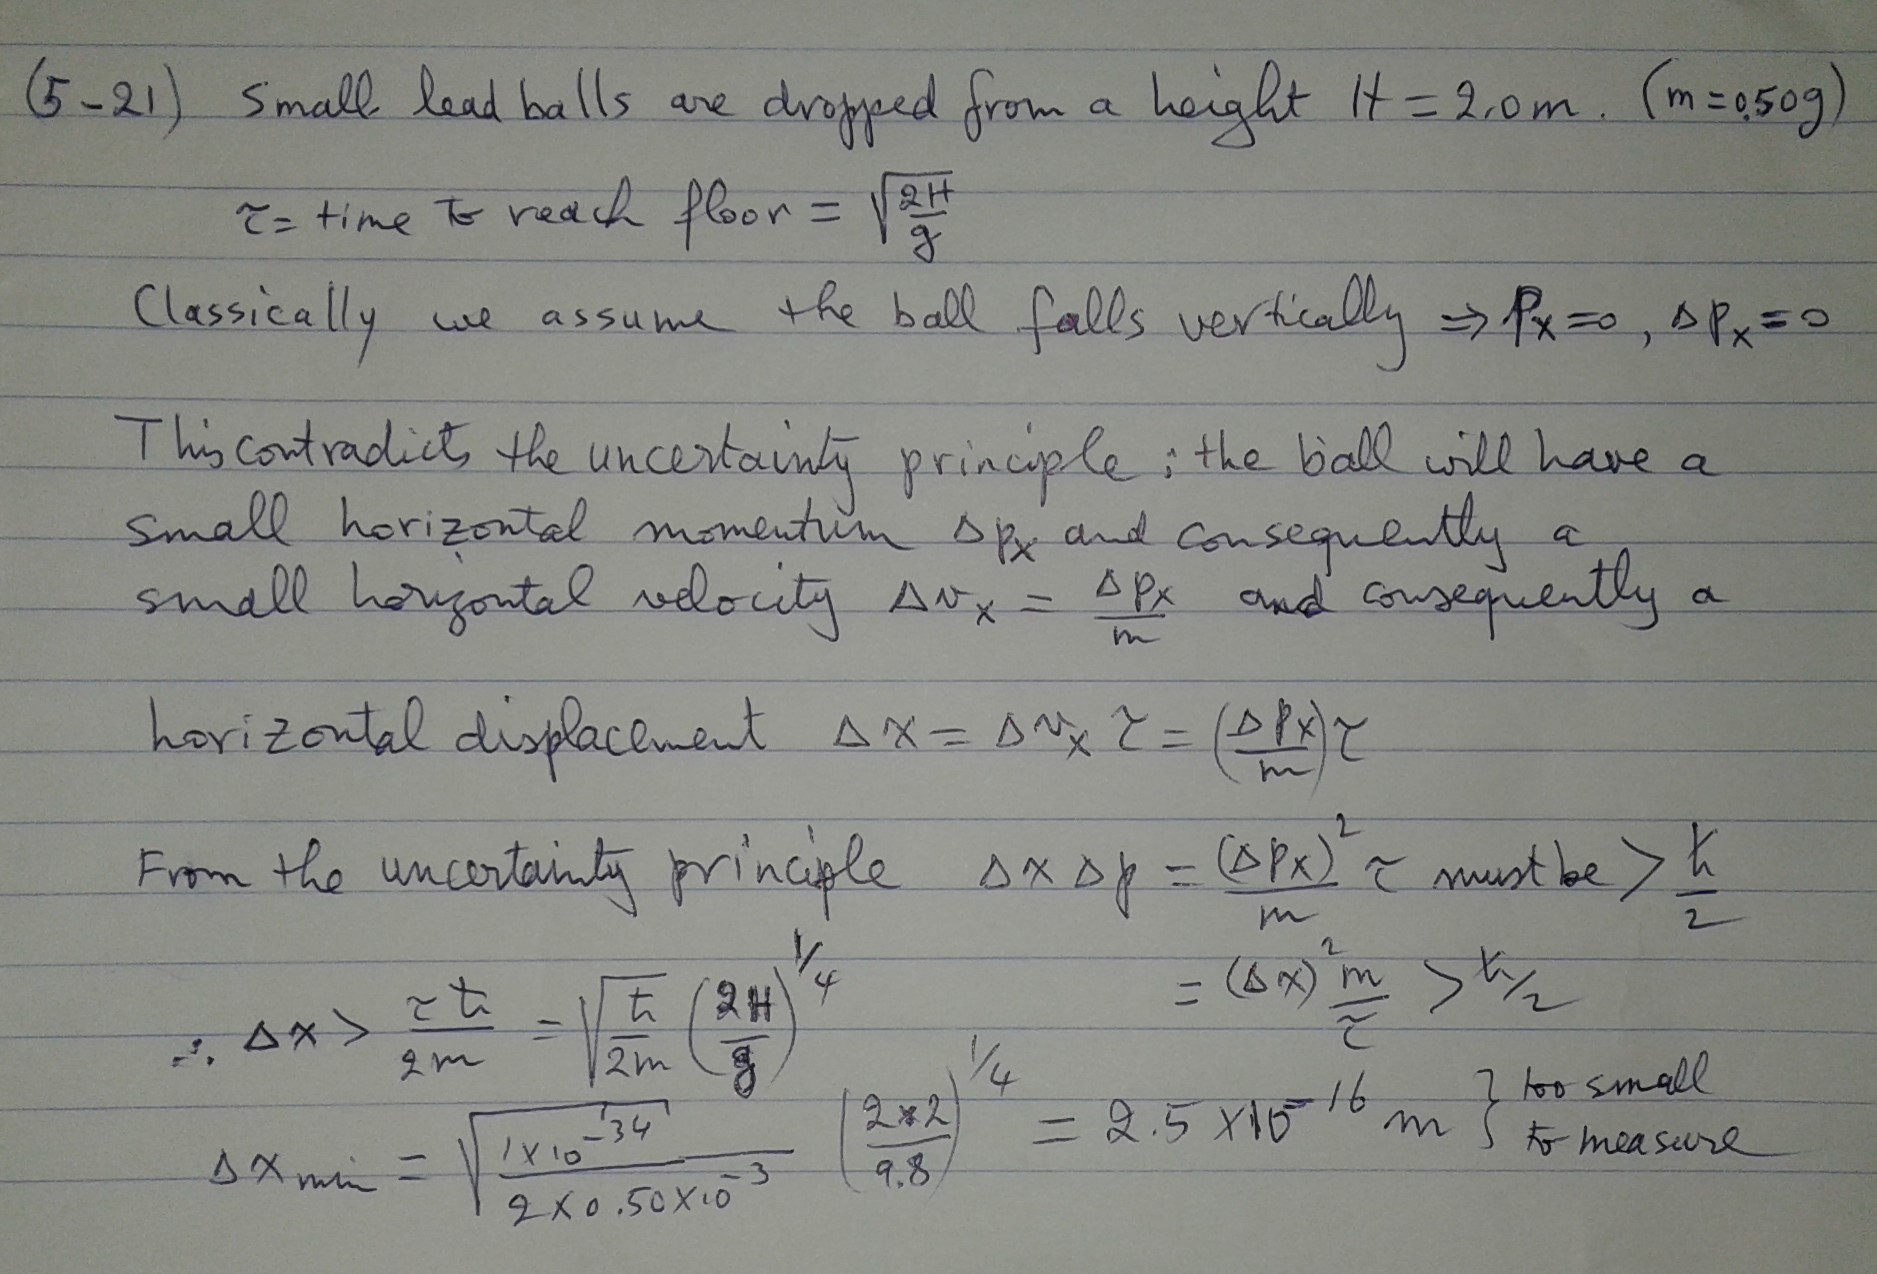 (5-21) Small lead balls are dropped from a height H = 2.0m. (m=0.50g)
τ = time to reach floor = √(2H/g)
Classically we assume the ball falls vertically ⇒ Px=0, ΔPx=0
This contradicts the uncertainty principle; the ball will have a
small horizontal momentum Δpx and consequently a
small horizontal velocity Δvx = Δpx/m and consequently a
horizontal displacement Δx = Δvx τ = (Δpx/m)τ
From the uncertainty principle Δx Δp = (Δpx)²/m τ must be > ħ/2
= (Δx)² m/τ > ħ/2
∴ Δx > τħ/2m = √(ħ/2m) (2H/g)^1/4
Δx min = √(1×10^-34/2×0.50×10^-3) (2×2/9.8)^1/4 = 2.5×10^-16 m } too small
to measure